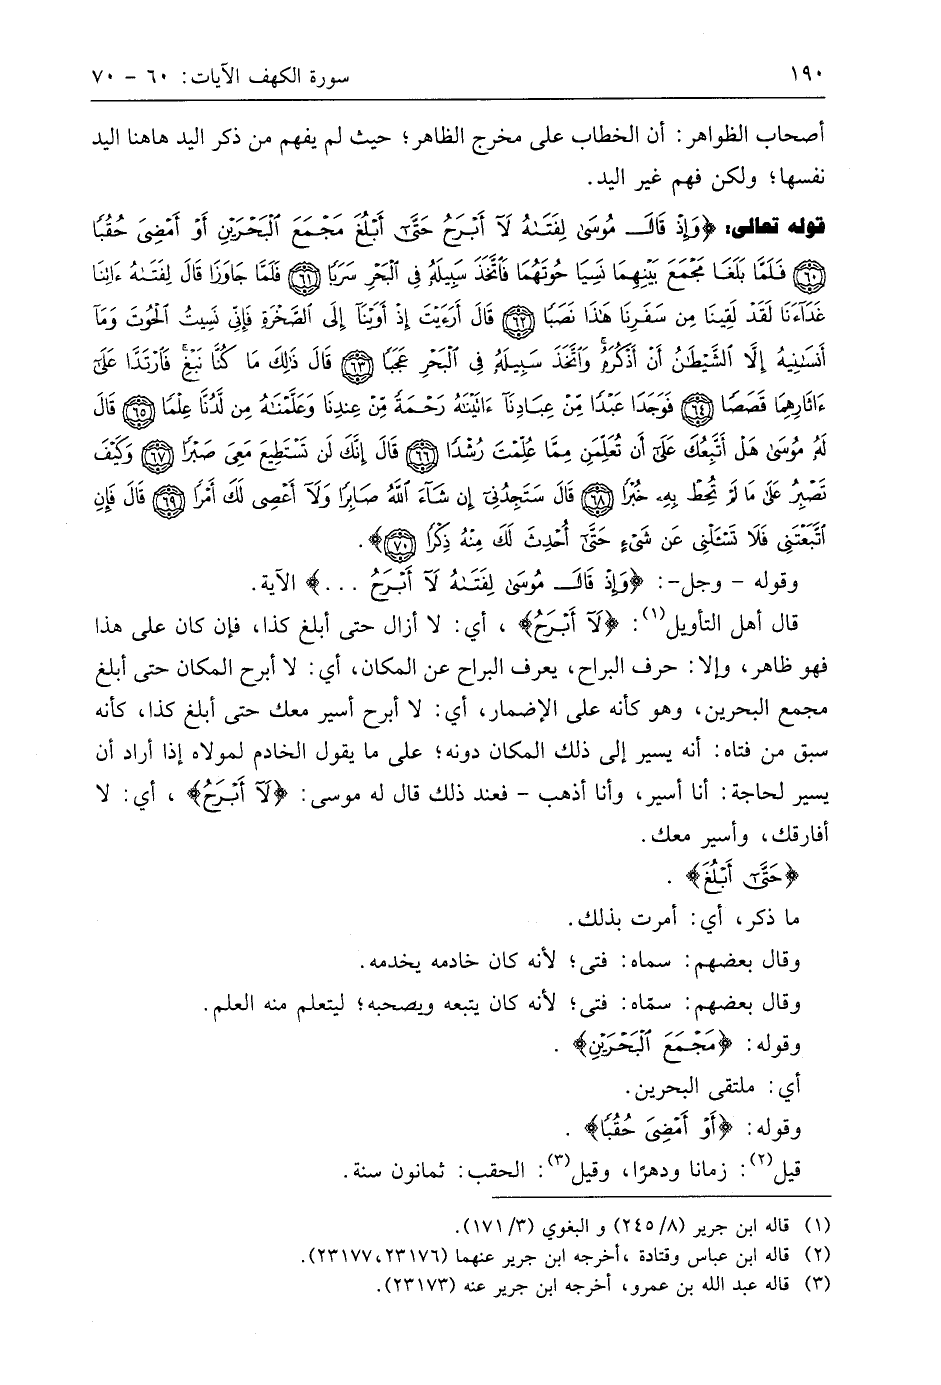 ١٩٠ سورة الكهف الآيات: ٦٠ - ٧٠
أصحاب الظواهر: أن الخطاب على مخرج الظاهر؛ حيث لم يفهم من ذكر اليد هاهنا اليد
نفسها؛ ولكن فهم غير اليد.
قوله تعالى: ﴿وَإِذْ قَالَ مُوسَىٰ لِفَتَىٰهُ لَآ أَبْرَحُ حَتَّىٰٓ أَبْلُغَ مَجْمَعَ ٱلْبَحْرَيْنِ أَوْ أَمْضِىَ حُقُبًا
﴿٦٠﴾ فَلَمَّا بَلَغَا مَجْمَعَ بَيْنِهِمَا نَسِيَا حُوتَهُمَا فَٱتَّخَذَ سَبِيلَهُۥ فِى ٱلْبَحْرِ سَرَبًا ﴿٦١﴾ فَلَمَّا جَاوَزَا قَالَ لِفَتَىٰهُ ءَاتِنَا
غَدَآءَنَا لَقَدْ لَقِينَا مِن سَفَرِنَا هَٰذَا نَصَبًا ﴿٦٢﴾ قَالَ أَرَءَيْتَ إِذْ أَوَيْنَآ إِلَى ٱلصَّخْرَةِ فَإِنِّى نَسِيتُ ٱلْحُوتَ وَمَآ
أَنسَىٰنِيهُ إِلَّا ٱلشَّيْطَٰنُ أَنْ أَذْكُرَهُۥ ۚ وَٱتَّخَذَ سَبِيلَهُۥ فِى ٱلْبَحْرِ عَجَبًا ﴿٦٣﴾ قَالَ ذَٰلِكَ مَا كُنَّا نَبْغِ ۚ فَٱرْتَدَّا عَلَىٰٓ
ءَاثَارِهِمَا قَصَصًا ﴿٦٤﴾ فَوَجَدَا عَبْدًا مِّنْ عِبَادِنَآ ءَاتَيْنَٰهُ رَحْمَةً مِّنْ عِندِنَا وَعَلَّمْنَٰهُ مِن لَّدُنَّا عِلْمًا ﴿٦٥﴾ قَالَ
لَهُۥ مُوسَىٰ هَلْ أَتَّبِعُكَ عَلَىٰٓ أَن تُعَلِّمَنِ مِمَّا عُلِّمْتَ رُشْدًا ﴿٦٦﴾ قَالَ إِنَّكَ لَن تَسْتَطِيعَ مَعِىَ صَبْرًا ﴿٦٧﴾ وَكَيْفَ
تَصْبِرُ عَلَىٰ مَا لَمْ تُحِطْ بِهِۦ خُبْرًا ﴿٦٨﴾ قَالَ سَتَجِدُنِىٓ إِن شَآءَ ٱللَّهُ صَابِرًا وَلَآ أَعْصِى لَكَ أَمْرًا ﴿٦٩﴾ قَالَ فَإِنِ
ٱتَّبَعْتَنِى فَلَا تَسْـَٔلْنِى عَن شَىْءٍ حَتَّىٰٓ أُحْدِثَ لَكَ مِنْهُ ذِكْرًا ﴿٧٠﴾﴾.
وقوله - وجل-: ﴿وَإِذْ قَالَ مُوسَىٰ لِفَتَىٰهُ لَآ أَبْرَحُ ...﴾ الآية.
قال أهل التأويل(١): ﴿لَآ أَبْرَحُ﴾ ، أي: لا أزال حتى أبلغ كذا، فإن كان على هذا
فهو ظاهر، وإلا: حرف البراح، يعرف البراح عن المكان، أي: لا أبرح المكان حتى أبلغ
مجمع البحرين، وهو كأنه على الإضمار، أي: لا أبرح أسير معك حتى أبلغ كذا، كأنه
سبق من فتاه: أنه يسير إلى ذلك المكان دونه؛ على ما يقول الخادم لمولاه إذا أراد أن
يسير لحاجة: أنا أسير، وأنا أذهب - فعند ذلك قال له موسى: ﴿لَآ أَبْرَحُ﴾ ، أي: لا
أفارقك، وأسير معك.
﴿حَتَّىٰٓ أَبْلُغَ﴾ .
ما ذكر، أي: أمرت بذلك.
وقال بعضهم: سماه: فتى؛ لأنه كان خادمه يخدمه.
وقال بعضهم: سمّاه: فتى؛ لأنه كان يتبعه ويصحبه؛ ليتعلم منه العلم.
وقوله: ﴿مَجْمَعَ ٱلْبَحْرَيْنِ﴾ .
أي: ملتقى البحرين.
وقوله: ﴿أَوْ أَمْضِىَ حُقُبًا﴾ .
قيل(٢): زمانا ودهرًا، وقيل(٣): الحقب: ثمانون سنة.
(١) قاله ابن جرير (٢٤٥/٨) و البغوي (١٧١/٣).
(٢) قاله ابن عباس وقتادة ،أخرجه ابن جرير عنهما (٢٣١٧٦،٢٣١٧٧).
(٣) قاله عبد الله بن عمرو، أخرجه ابن جرير عنه (٢٣١٧٣).